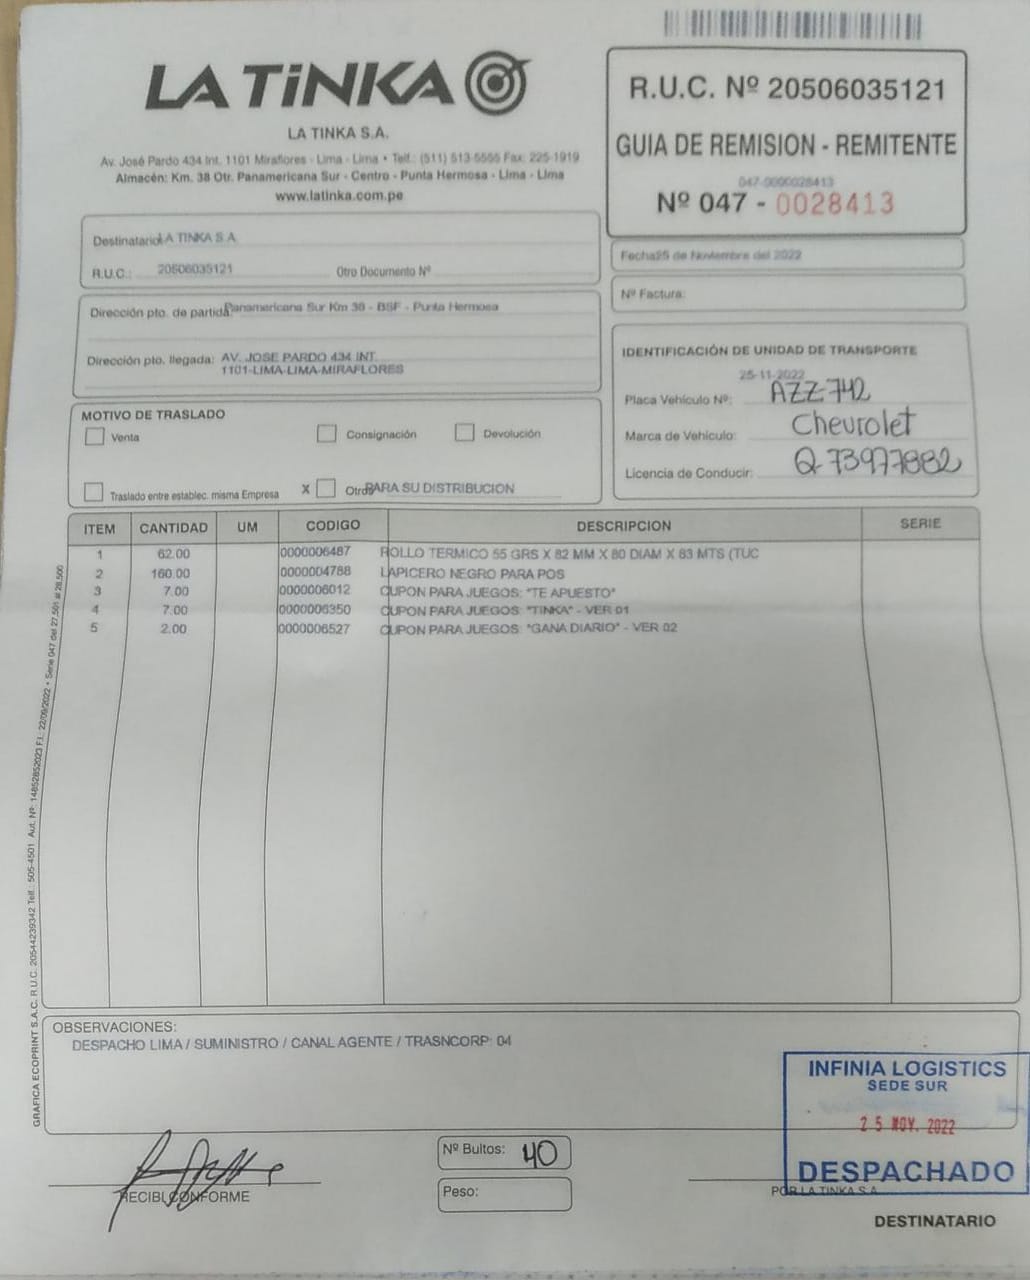 LA TiNKA
LA TINKA S.A.
Av. José Pardo 434 Int. 1101 Miraflores - Lima - Lima • Telf.: (511) 513-5555 Fax: 225-1919
Almacén: Km. 38 Otr. Panamericana Sur - Centro - Punta Hermosa - Lima - Lima
www.latinka.com.pe
R.U.C. Nº 20506035121
GUIA DE REMISION - REMITENTE
047-0000028413
Nº 047 - 0028413
Destinatario LA TINKA S.A.
R.U.C.: 20506035121 Otro Documento Nº
Fecha 25 de Noviembre del 2022
Nº Factura:
Dirección pto. de partida Panamericana Sur Km 38 - BSF - Punta Hermosa
Dirección pto. llegada: AV. JOSE PARDO 434 INT.
1101-LIMA-LIMA-MIRAFLORES
IDENTIFICACIÓN DE UNIDAD DE TRANSPORTE
25-11-2022
Placa Vehículo Nº: AZZ-742
Marca de Vehículo: Chevrolet
Licencia de Conducir: Q-73977882
MOTIVO DE TRASLADO
Venta Consignación Devolución
Traslado entre establec. misma Empresa X Otros PARA SU DISTRIBUCION
ITEM CANTIDAD UM CODIGO DESCRIPCION SERIE
1 62.00 0000006487 ROLLO TERMICO 55 GRS X 82 MM X 80 DIAM X 83 MTS (TUC
2 160.00 0000004788 LAPICERO NEGRO PARA POS
3 7.00 0000006012 CUPON PARA JUEGOS: "TE APUESTO"
4 7.00 0000006350 CUPON PARA JUEGOS: "TINKA" - VER 01
5 2.00 0000006527 CUPON PARA JUEGOS: "GANA DIARIO" - VER 02
GRAFICA ECOPRINT S.A.C. R.U.C. 20544239342 Telf.: 505-4501 Aut. Nº: 14852852023 F.I.: 22/09/2022 • Serie 047 del 27,501 al 28,500
OBSERVACIONES:
DESPACHO LIMA / SUMINISTRO / CANAL AGENTE / TRASNCORP: 04
INFINIA LOGISTICS
SEDE SUR
25 NOV. 2022
DESPACHADO
RECIBI CONFORME
Nº Bultos: 40
Peso:
POR LA TINKA S.A.
DESTINATARIO